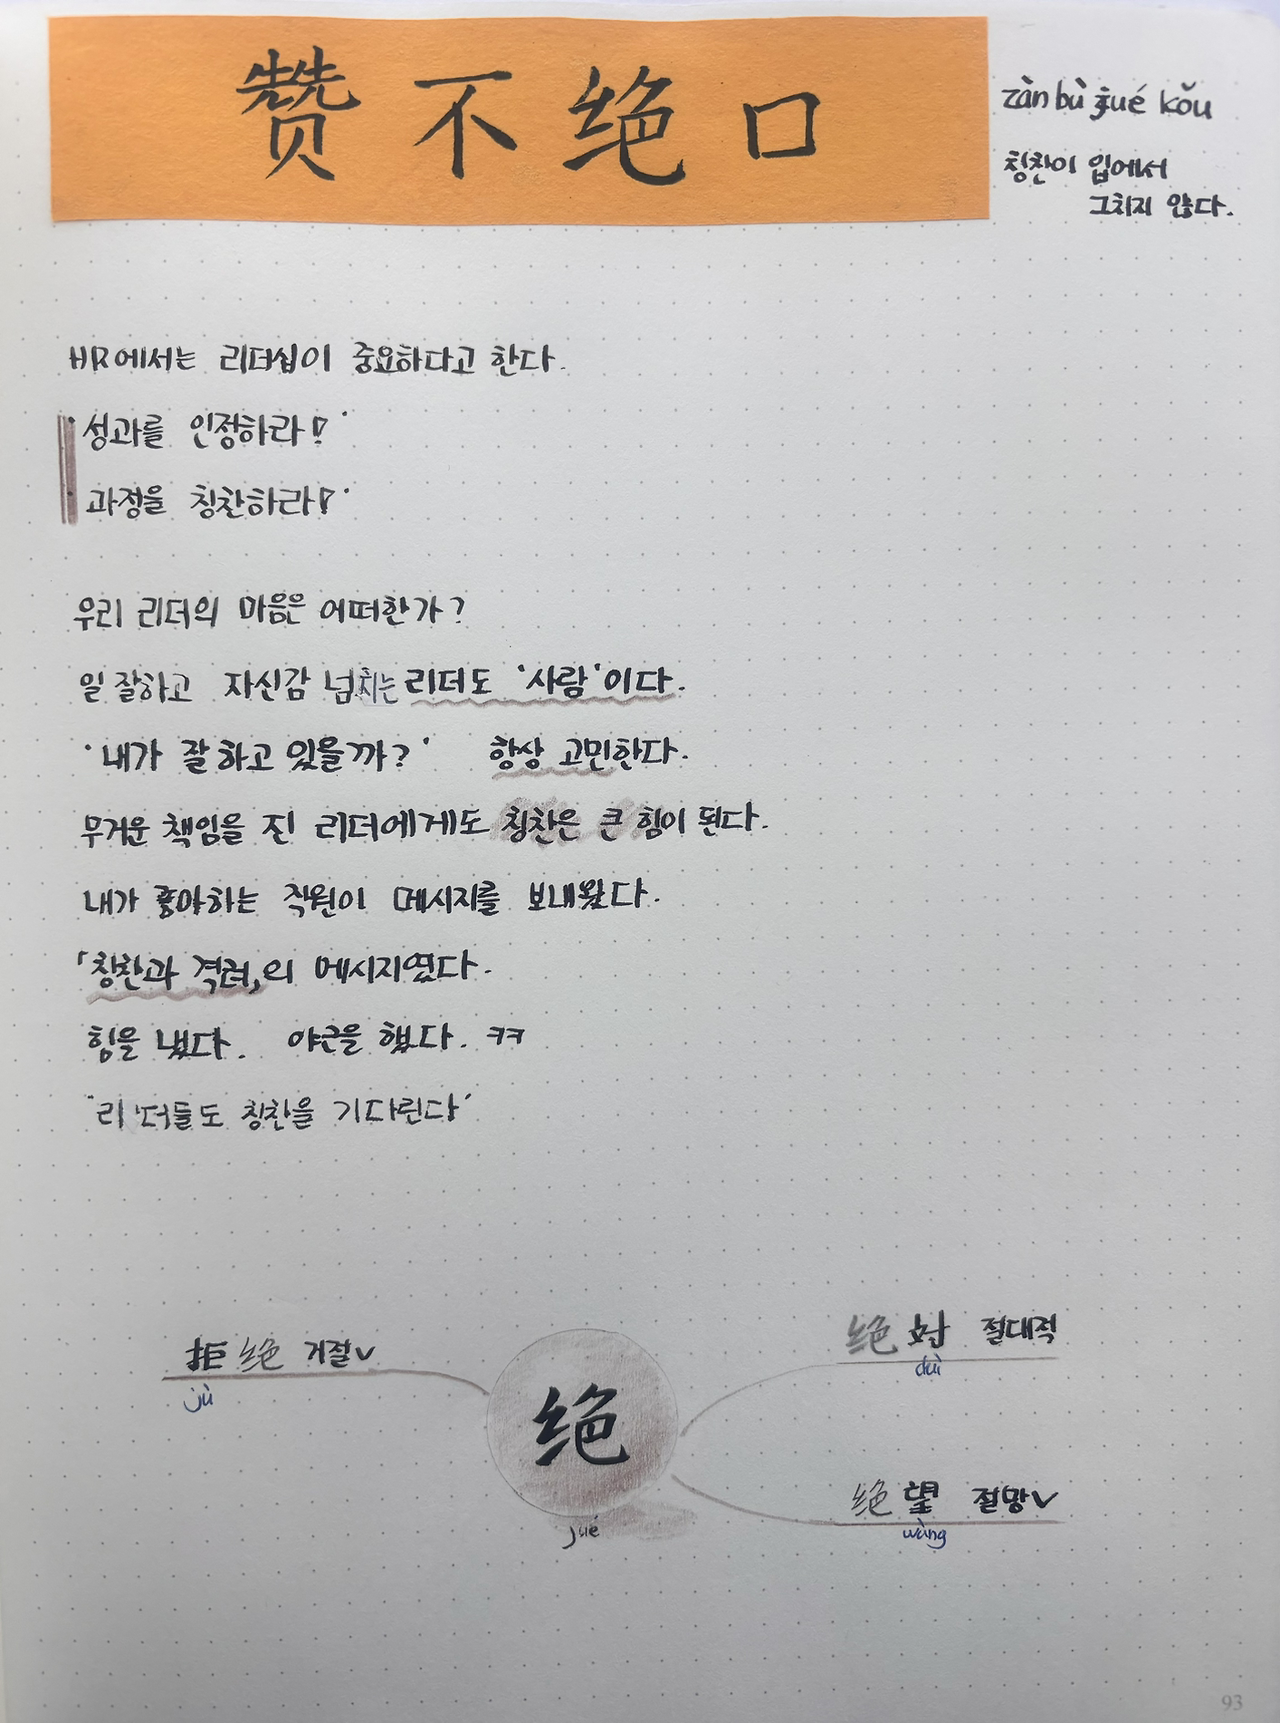 赞不绝口
zàn bù jué kǒu
칭찬이 입에서
그치지 않다.
HR에서는 리더십이 중요하다고 한다.
'성과를 인정하라!'
'과정을 칭찬하라!'
우리 리더의 마음은 어떠한가?
일 잘하고 자신감 넘치는 리더도 '사람'이다.
'내가 잘하고 있을까?' 항상 고민한다.
무거운 책임을 진 리더에게도 칭찬은 큰 힘이 된다.
내가 좋아하는 직원이 메시지를 보내왔다.
「칭찬과 격려」의 메시지였다.
힘을 냈다. 야근을 했다. ㅋㅋ
'리더들도 칭찬을 기다린다'
拒绝 거절✓
jù
绝
jué
绝对 절대적
duì
绝望 절망✓
wàng
93